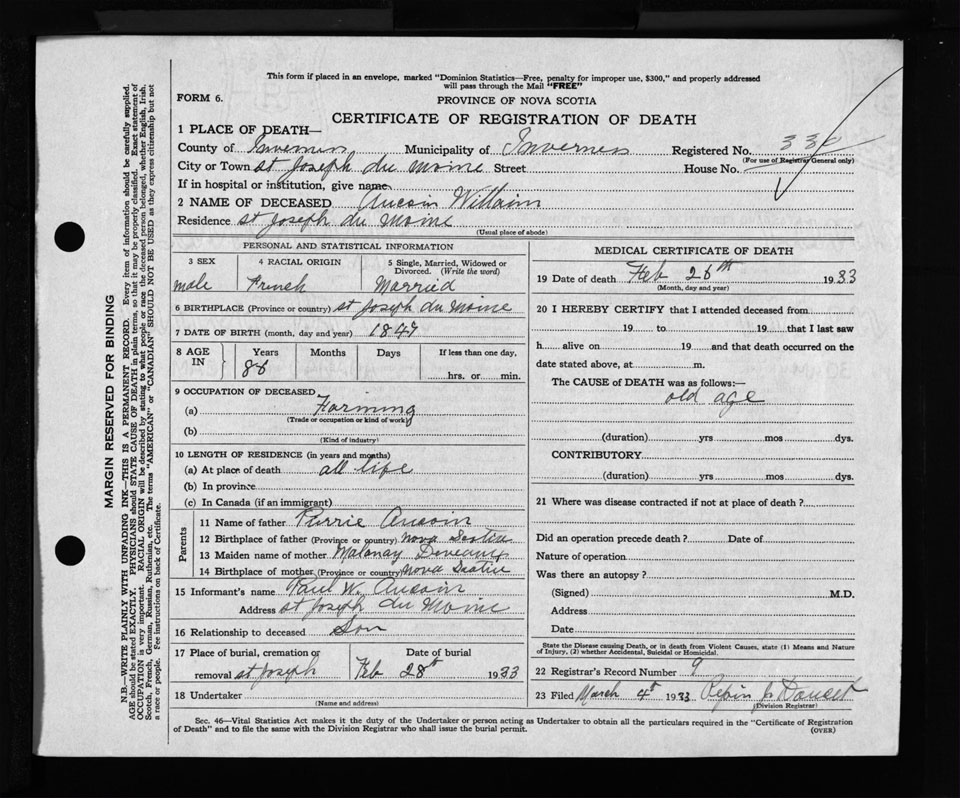 This form if placed in an envelope, marked "Dominion Statistics—Free, penalty for improper use, $300," and properly addressed
will pass through the Mail "FREE"
FORM 6.
PROVINCE OF NOVA SCOTIA
CERTIFICATE OF REGISTRATION OF DEATH
1 PLACE OF DEATH—
County of Inverness Municipality of Inverness Registered No.
(For use of Registrar General only)
City or Town St Joseph du Moine Street House No.
If in hospital or institution, give name
2 NAME OF DECEASED Aucoin Williaim
Residence St Joseph du Moine
(Usual place of abode)
PERSONAL AND STATISTICAL INFORMATION
3 SEX 4 RACIAL ORIGIN 5 Single, Married, Widowed or
Divorced. (Write the word)
male French Married
6 BIRTHPLACE (Province or country) St Joseph du Moine
7 DATE OF BIRTH (month, day and year)
8 AGE IN Years Months Days If less than one day,
hrs. or min.
9 OCCUPATION OF DECEASED
(a) Farming
(Trade or occupation or kind of work)
(b)
(Kind of industry)
10 LENGTH OF RESIDENCE (in years and months)
(a) At place of death all life
(b) In province
(c) In Canada (if an immigrant)
Parents
11 Name of father Pierrie Aucoin
12 Birthplace of father (Province or country) Nova Scotia
13 Maiden name of mother Deveaux
14 Birthplace of mother (Province or country) Nova Scotia
15 Informant's name Paul W. Aucoin
Address St Joseph du Moine
16 Relationship to deceased Son
17 Place of burial, cremation or Date of burial
removal St Joseph Feb 28th 1933
18 Undertaker
(Name and address)
MEDICAL CERTIFICATE OF DEATH
19 Date of death Feb 26th 1933
(Month, day and year)
20 I HEREBY CERTIFY that I attended deceased from
19 to 19 that I last saw
h alive on 19 and that death occurred on the
date stated above, at m.
The CAUSE of DEATH was as follows:—
old age
(duration) yrs mos dys.
CONTRIBUTORY
(duration) yrs mos dys.
21 Where was disease contracted if not at place of death?
Did an operation precede death? Date of
Nature of operation
Was there an autopsy?
(Signed) M.D.
Address
Date
State the Disease causing Death, or in death from Violent Causes, state (1) Means and Nature
of Injury, (2) whether Accidental, Suicidal or Homicidal.
22 Registrar's Record Number 9
23 Filed March 4th 1933 J. Doucet
(Division Registrar)
Sec. 46—Vital Statistics Act makes it the duty of the Undertaker or person acting as Undertaker to obtain all the particulars required in the "Certificate of Registration
of Death" and to file the same with the Division Registrar who shall issue the burial permit.
(OVER)
MARGIN RESERVED FOR BINDING
N.B.—WRITE PLAINLY WITH UNFADING INK—THIS IS A PERMANENT RECORD. Every item of information should be carefully supplied.
AGE should be stated EXACTLY. PHYSICIANS should STATE CAUSE OF DEATH in plain terms, so that it may be properly classified. Exact statement of
OCCUPATION is very important. RACIAL ORIGIN will be described by stating to what people or race the deceased person belonged, whether English, Irish,
Scotch, French, German, Russian, Ruthenian, etc. The terms "AMERICAN" or "CANADIAN" SHOULD NOT BE USED as they express citizenship but not
a race or people. Fee instructions on back of Certificate.